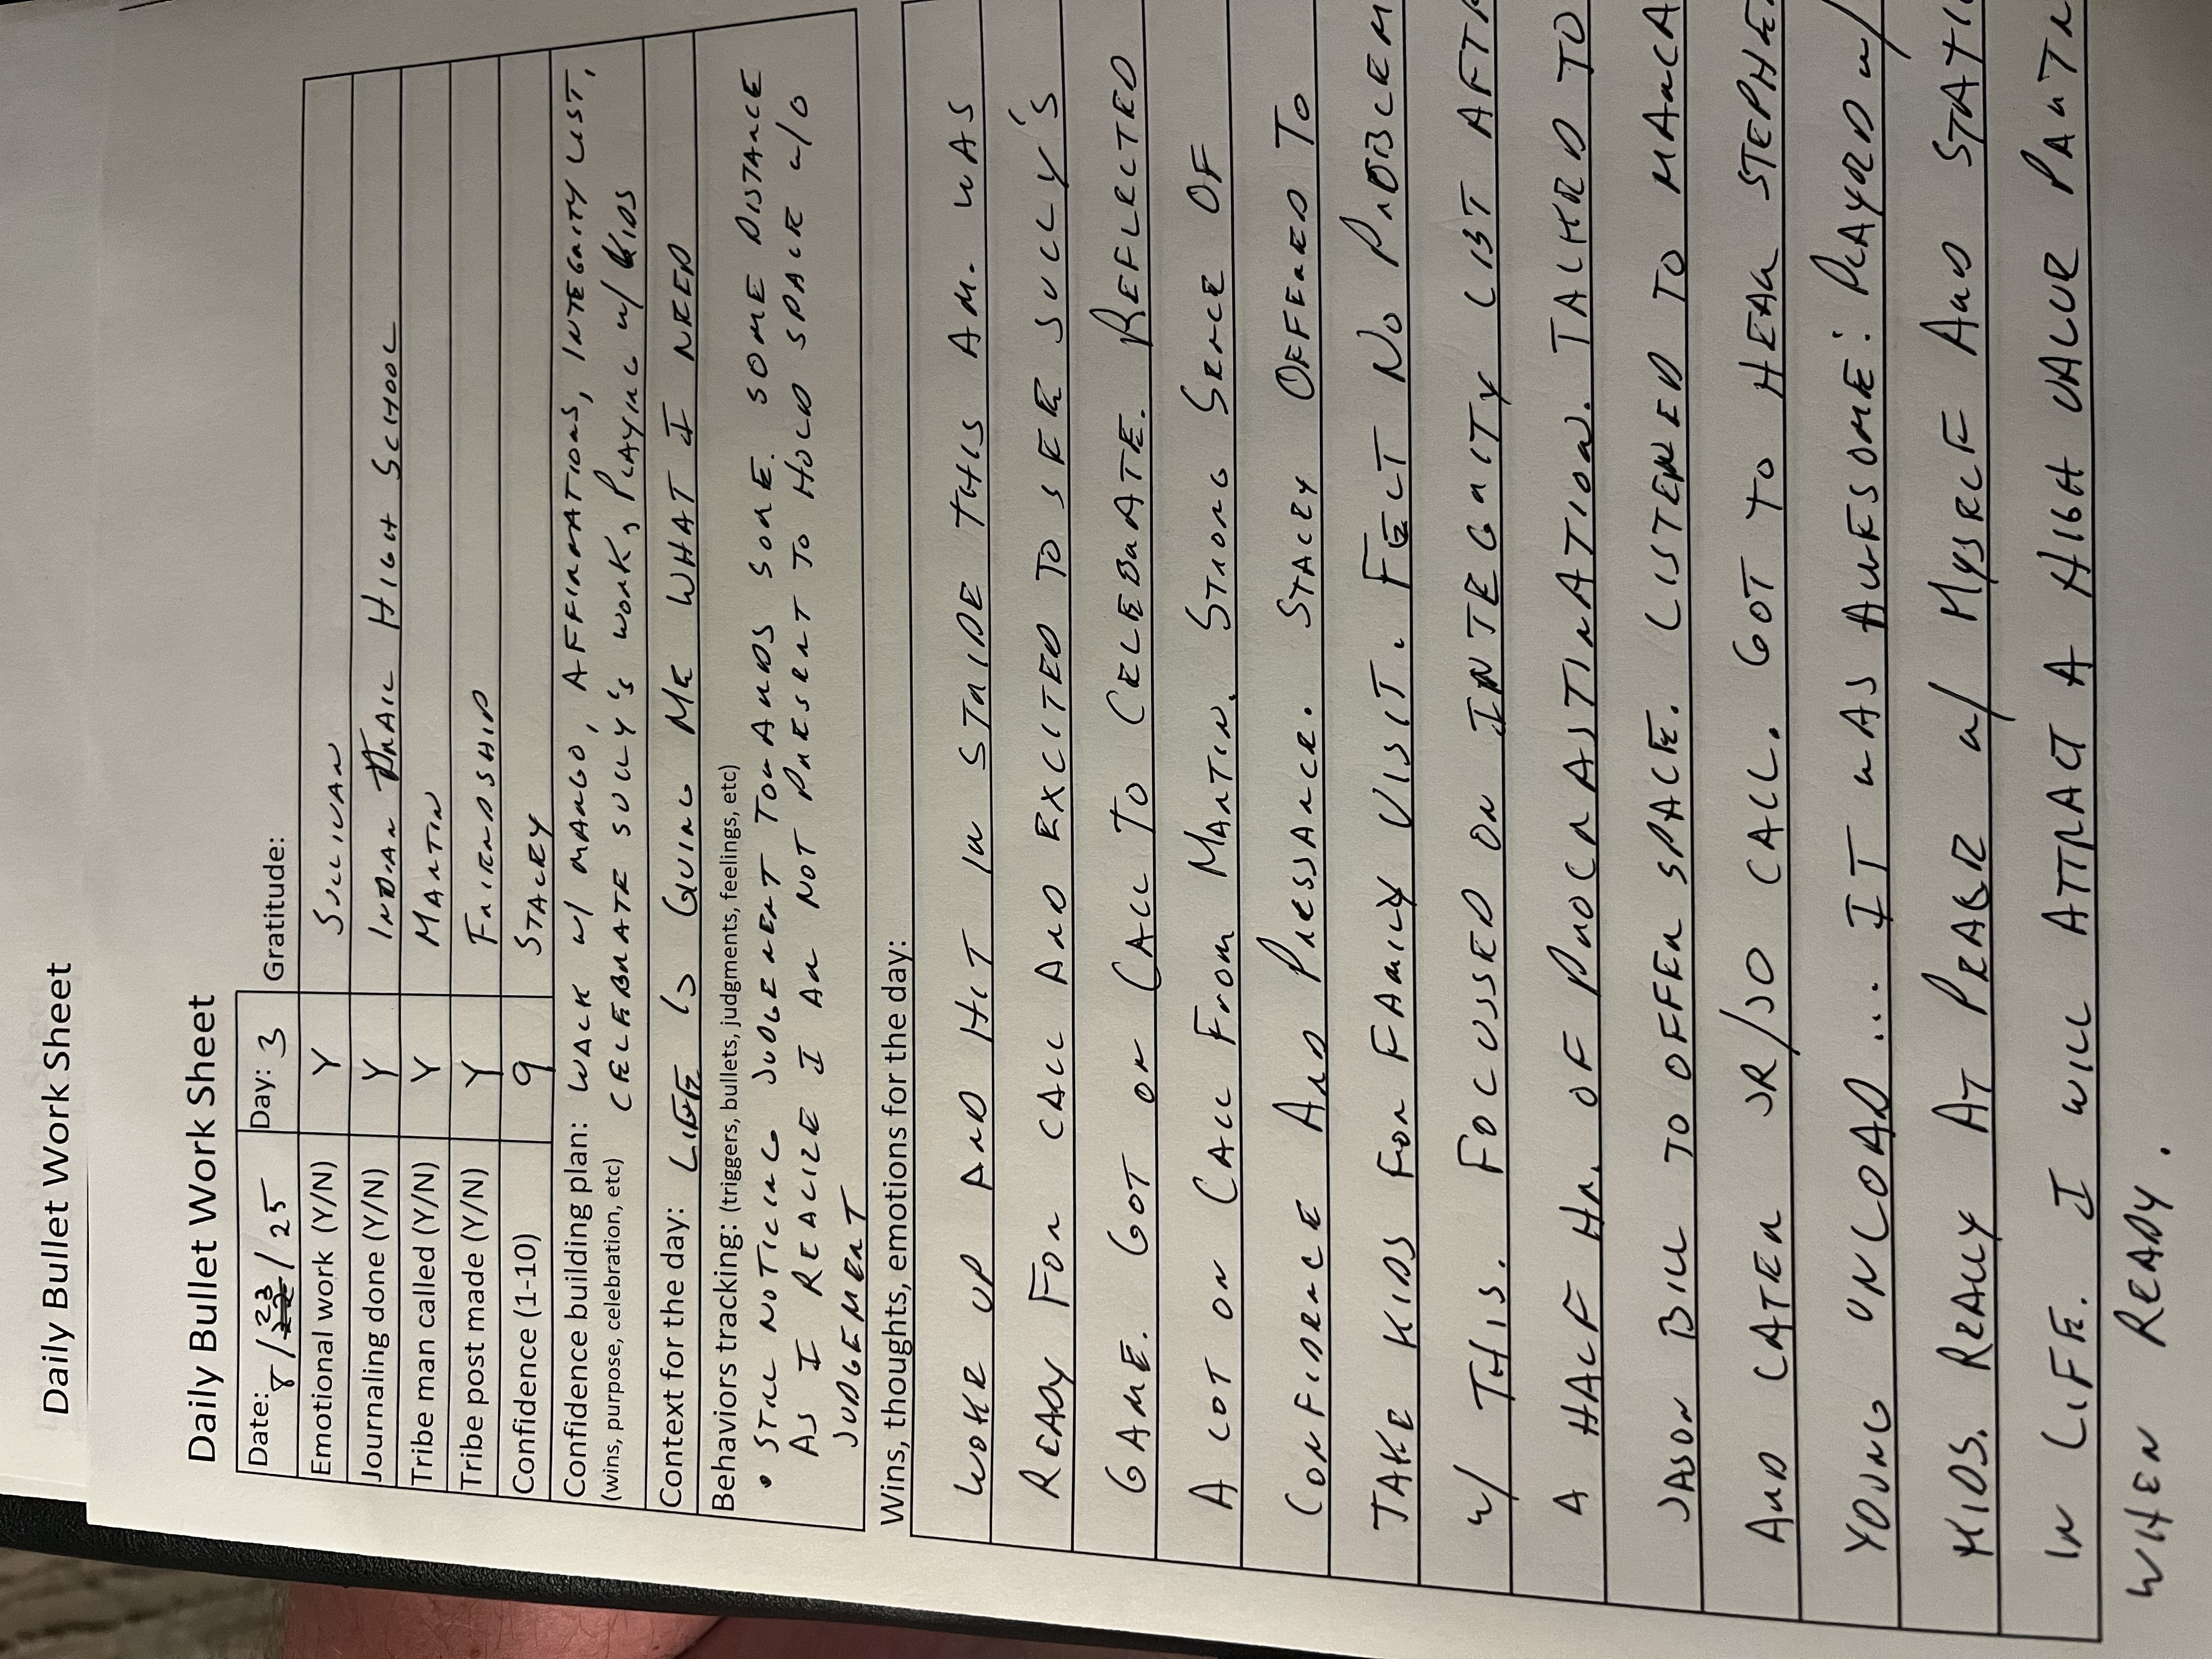 Daily Bullet Work Sheet
Daily Bullet Work Sheet
Date: 8/23/25 Day: 3 Gratitude:
Emotional work (Y/N) Y SULLIVAN
Journaling done (Y/N) Y INDIAN TRAIL HIGH SCHOOL
Tribe man called (Y/N) Y MARTIN
Tribe post made (Y/N) Y FRIENDSHIP
Confidence (1-10) 9 STACEY
Confidence building plan: WALK W/ MANGO, AFFIRMATIONS, INTEGRITY LIST,
(wins, purpose, celebration, etc) CELEBRATE SULLY'S WORK, PLAYING W/ KIDS
Context for the day: LIFE IS GIVING ME WHAT I NEED
Behaviors tracking: (triggers, bullets, judgments, feelings, etc)
• STILL NOTICING JUDGEMENT TOWARDS SOME. SOME DISTANCE
AS I REALIZE I AM NOT PRESENT TO HOLD SPACE W/O
JUDGEMENT
Wins, thoughts, emotions for the day:
WOKE UP AND HIT IN STRIDE THIS AM. WAS
READY FOR CALL AND EXCITED TO SEE SULLY'S
GAME. GOT ON CALL TO CELEBRATE. REFLECTED
A LOT ON CALL FROM MARTIN. STRONG SENSE OF
CONFIDENCE AND PRESSANCE. STACEY OFFERED TO
TAKE KIDS FOR FAMILY VISIT. FELT NO PROBLEM
W/ THIS. FOCUSSED ON INTEGRITY LIST AFT
A HALF HR. OF PROCRASTINATION. TALKED TO
JASON BILL TO OFFER SPACE. LISTENED TO MANCA
AND LATER JR/JO CALL. GOT TO HEAR STEPHE
YOUNG UNLOAD... IT WAS AWESOME! PLAYED W/
KIDS. REALLY AT PEACE W/ MYSELF AND STATI
IN LIFE. I WILL ATTRACT A HIGH VALUE PARTN
WHEN READY.